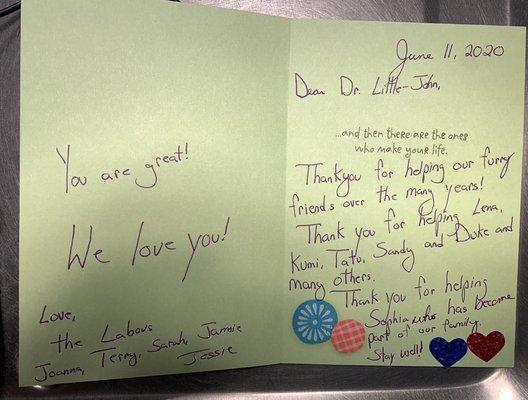 You are great!
We love you!
Love,
the Labous
Joanna, Terry, Sarah, Jamie
Jessie
June 11, 2020
Dear Dr. Little-John,
...and then there are the ones
who make your life.
Thankyou for helping our furry
friends over the many years!
Thank you for helping Lena,
Kumi, Tatu, Sandy and Duke and
many others.
Thank you for helping
Sophia who has become
part of our family.
Stay well!